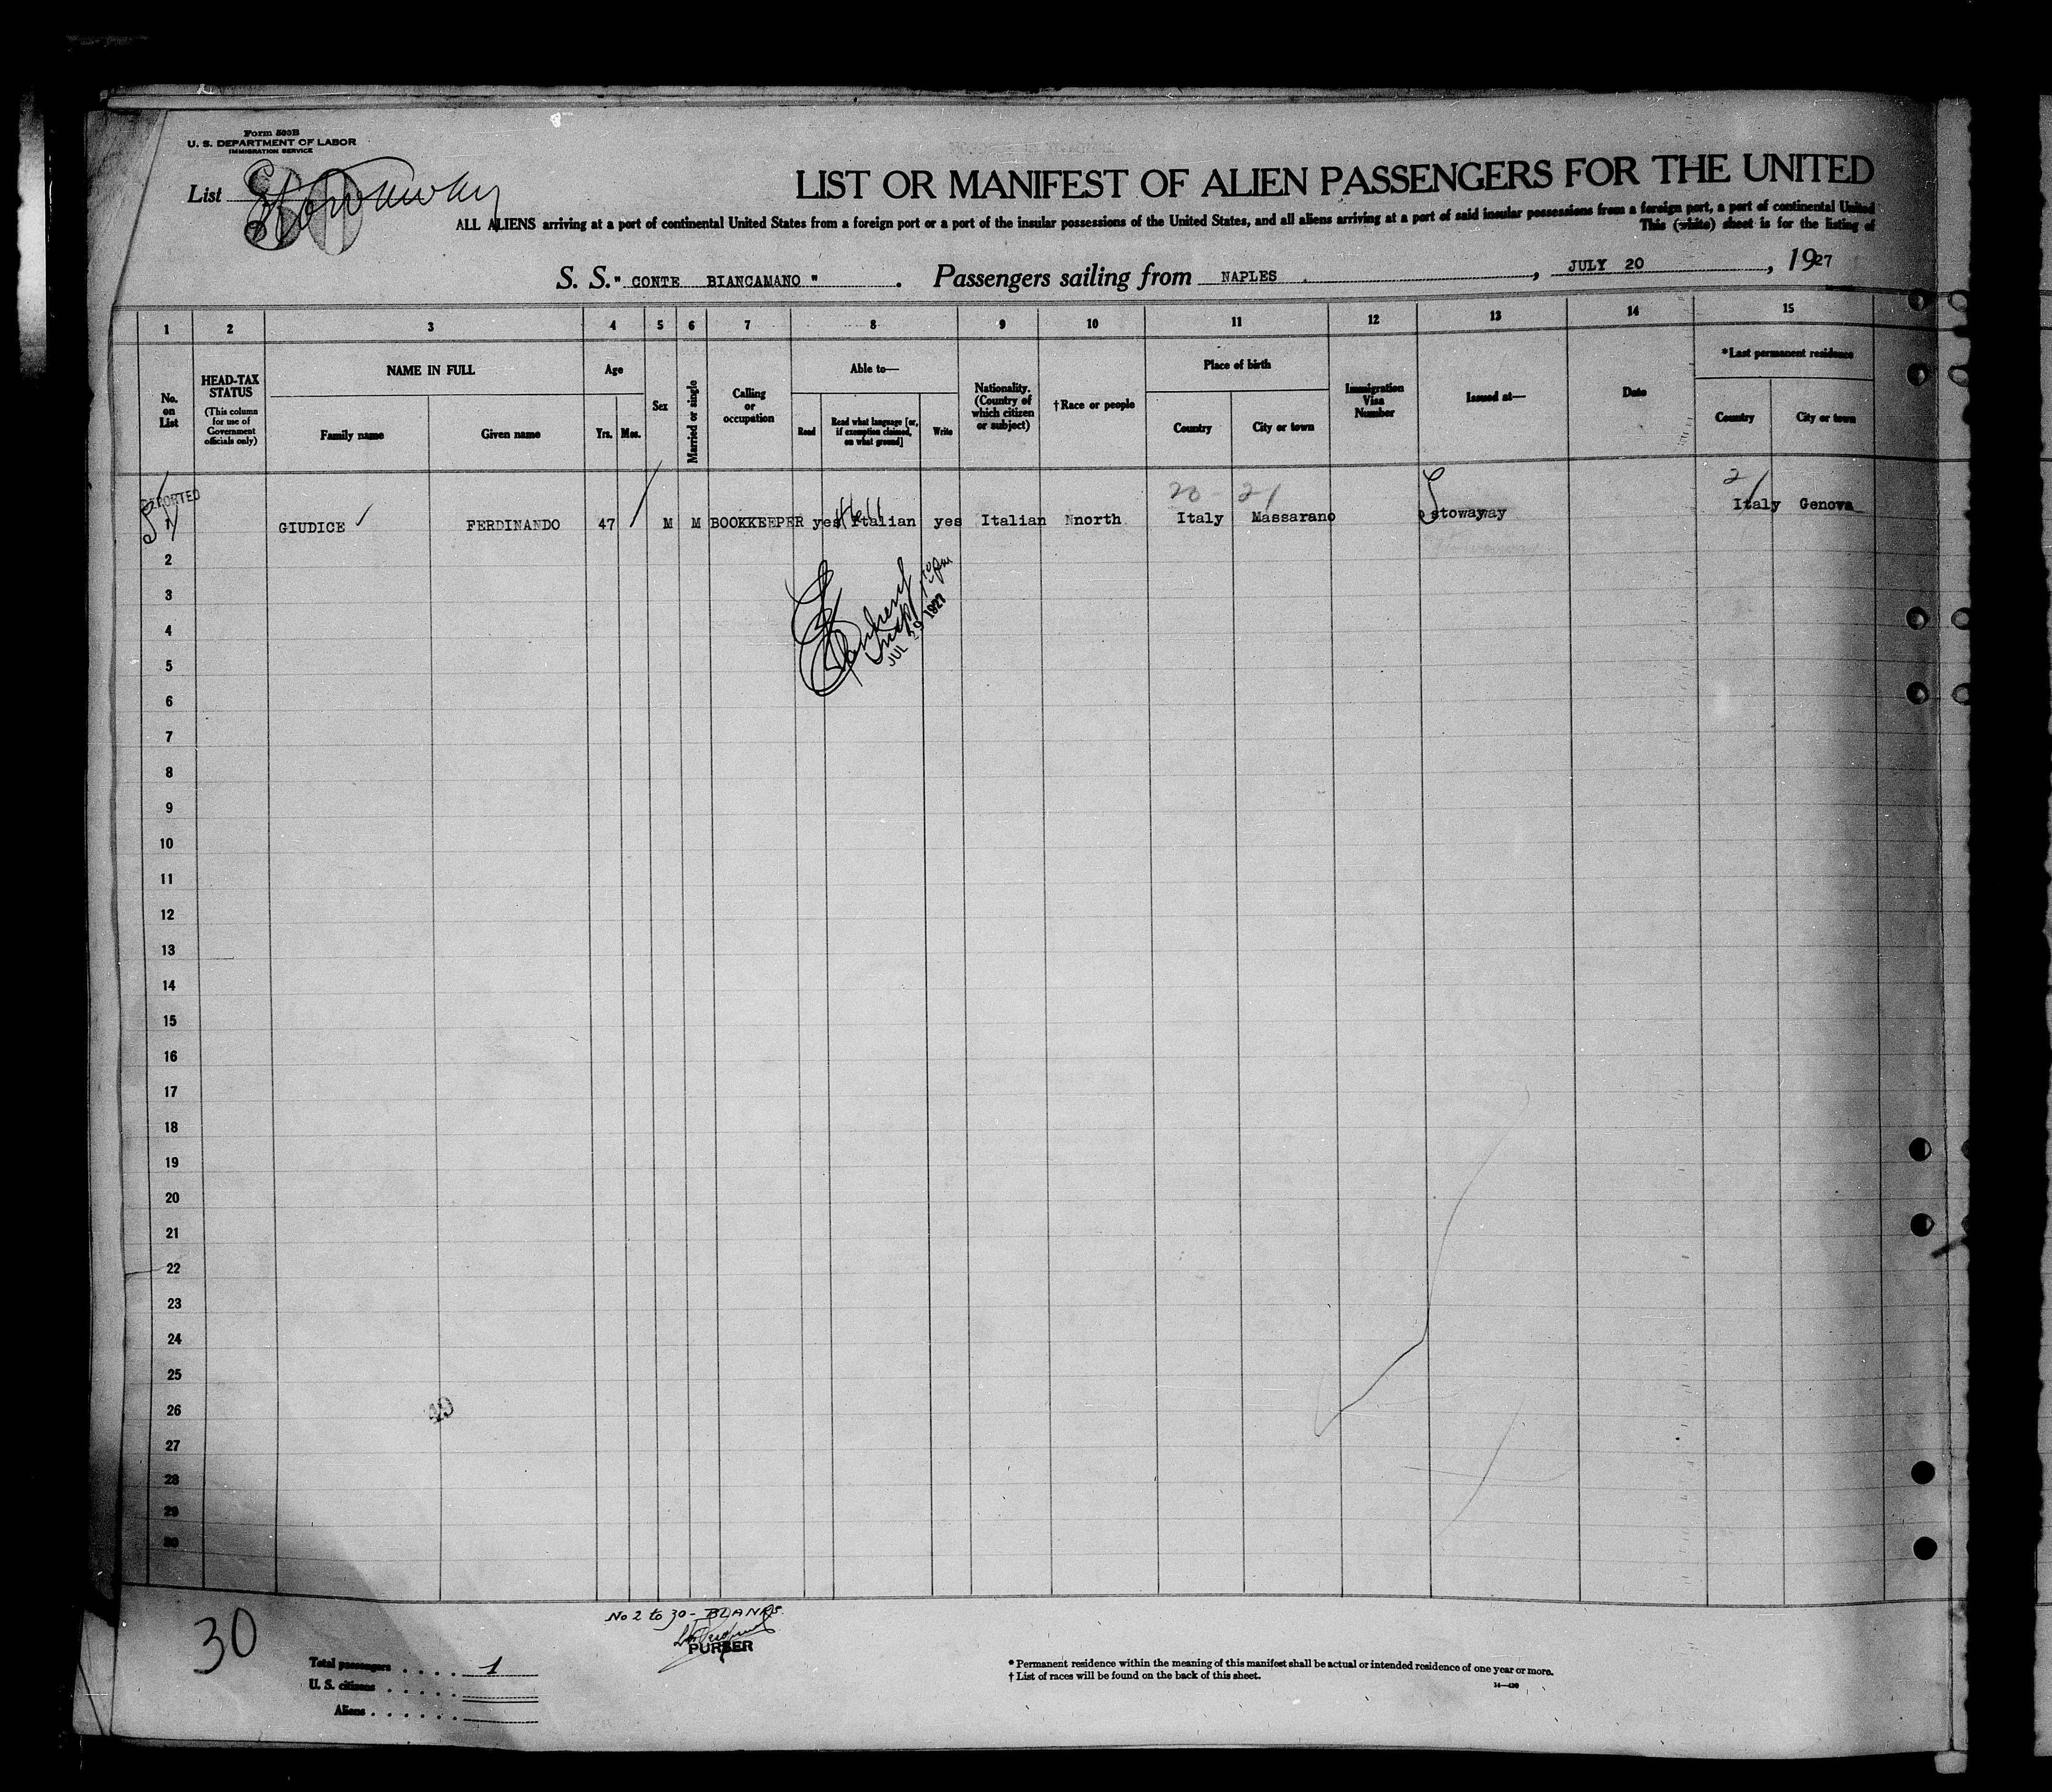 Form 500B
U. S. DEPARTMENT OF LABOR
IMMIGRATION SERVICE
List Stowaway
LIST OR MANIFEST OF ALIEN PASSENGERS FOR THE UNITED
ALL ALIENS arriving at a port of continental United States from a foreign port or a port of the insular possessions of the United States, and all aliens arriving at a port of said insular possessions from a foreign port, a port of continental United
This (white) sheet is for the listing of
S. S. " CONTE BIANCAMANO " . Passengers sailing from NAPLES , JULY 20 , 1927
1 2 3 4 5 6 7 8 9 10 11 12 13 14 15
No. on List
HEAD-TAX STATUS
(This column for use of Government officials only)
NAME IN FULL
Family name Given name
Age
Yrs. Mos.
Sex
Married or single
Calling or occupation
Able to—
Read
Read what language [or, if exemption claimed, on what ground]
Write
Nationality. (Country of which citizen or subject)
†Race or people
Place of birth
Country City or town
Immigration Visa Number
Issued at—
Date
*Last permanent residence
Country City or town
20 - 21 21
1 GIUDICE FERDINANDO 47 M M BOOKKEEPER yes Italian yes Italian Nnorth Italy Massarano stowayay Italy Genova
2
3
JUL 29 1927
4
5
6
7
8
9
10
11
12
13
14
15
16
17
18
19
20
21
22
23
24
25
26
49
27
28
29
30
30
No 2 to 30 - BLANKS.
PURSER
Total passengers . . . . 1
U. S. citizens . . . . .
Aliens . . . . . .
* Permanent residence within the meaning of this manifest shall be actual or intended residence of one year or more.
† List of races will be found on the back of this sheet.